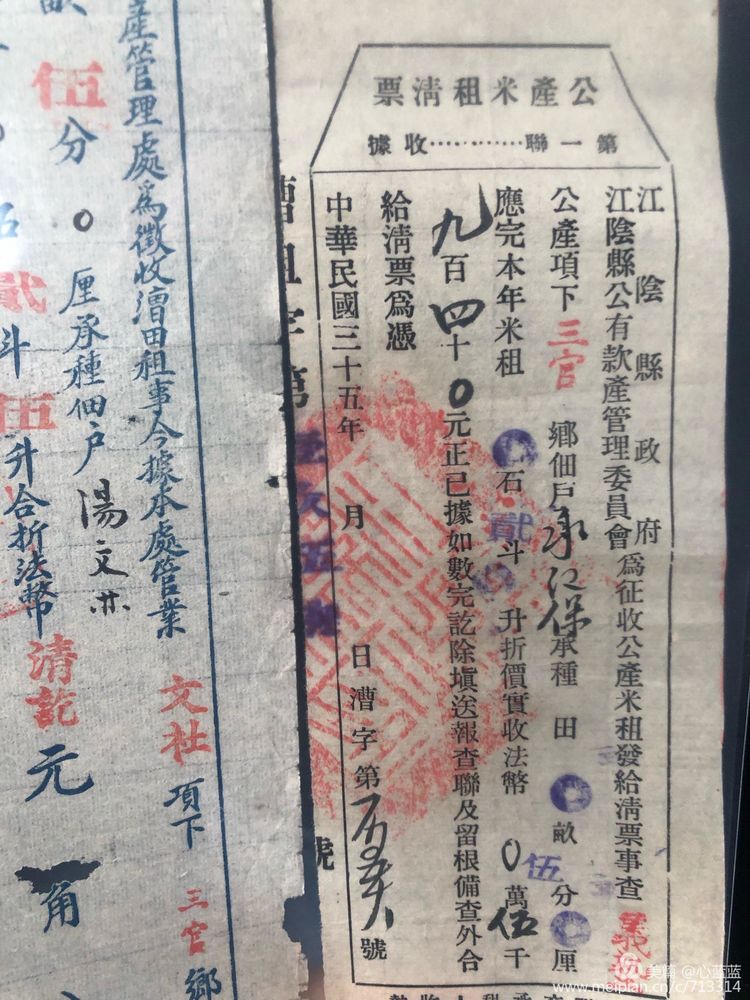 公產米租清票
第一聯⋯⋯⋯⋯收據
江陰縣政府
江陰縣公有款產管理委員會為征收公產米租發給清票事查
公產項下三官鄉佃戶承江保承種田畝伍分厘
應完本年米租石貳斗升折價實收法幣0萬伍千
九百四十0元正已據如數完訖除填送報查聯及留根備查外合
給清票爲憑
中華民國三十五年月日漕字第號
漕租字第號
鄉
文社項下三官鄉
產管理處爲徵收漕田租事今據本處管業
伍分0厘承種佃戶湯文
貳斗伍升合折法幣清訖元角
美篇@心蓝蓝
www.meipian.cn/c/713314